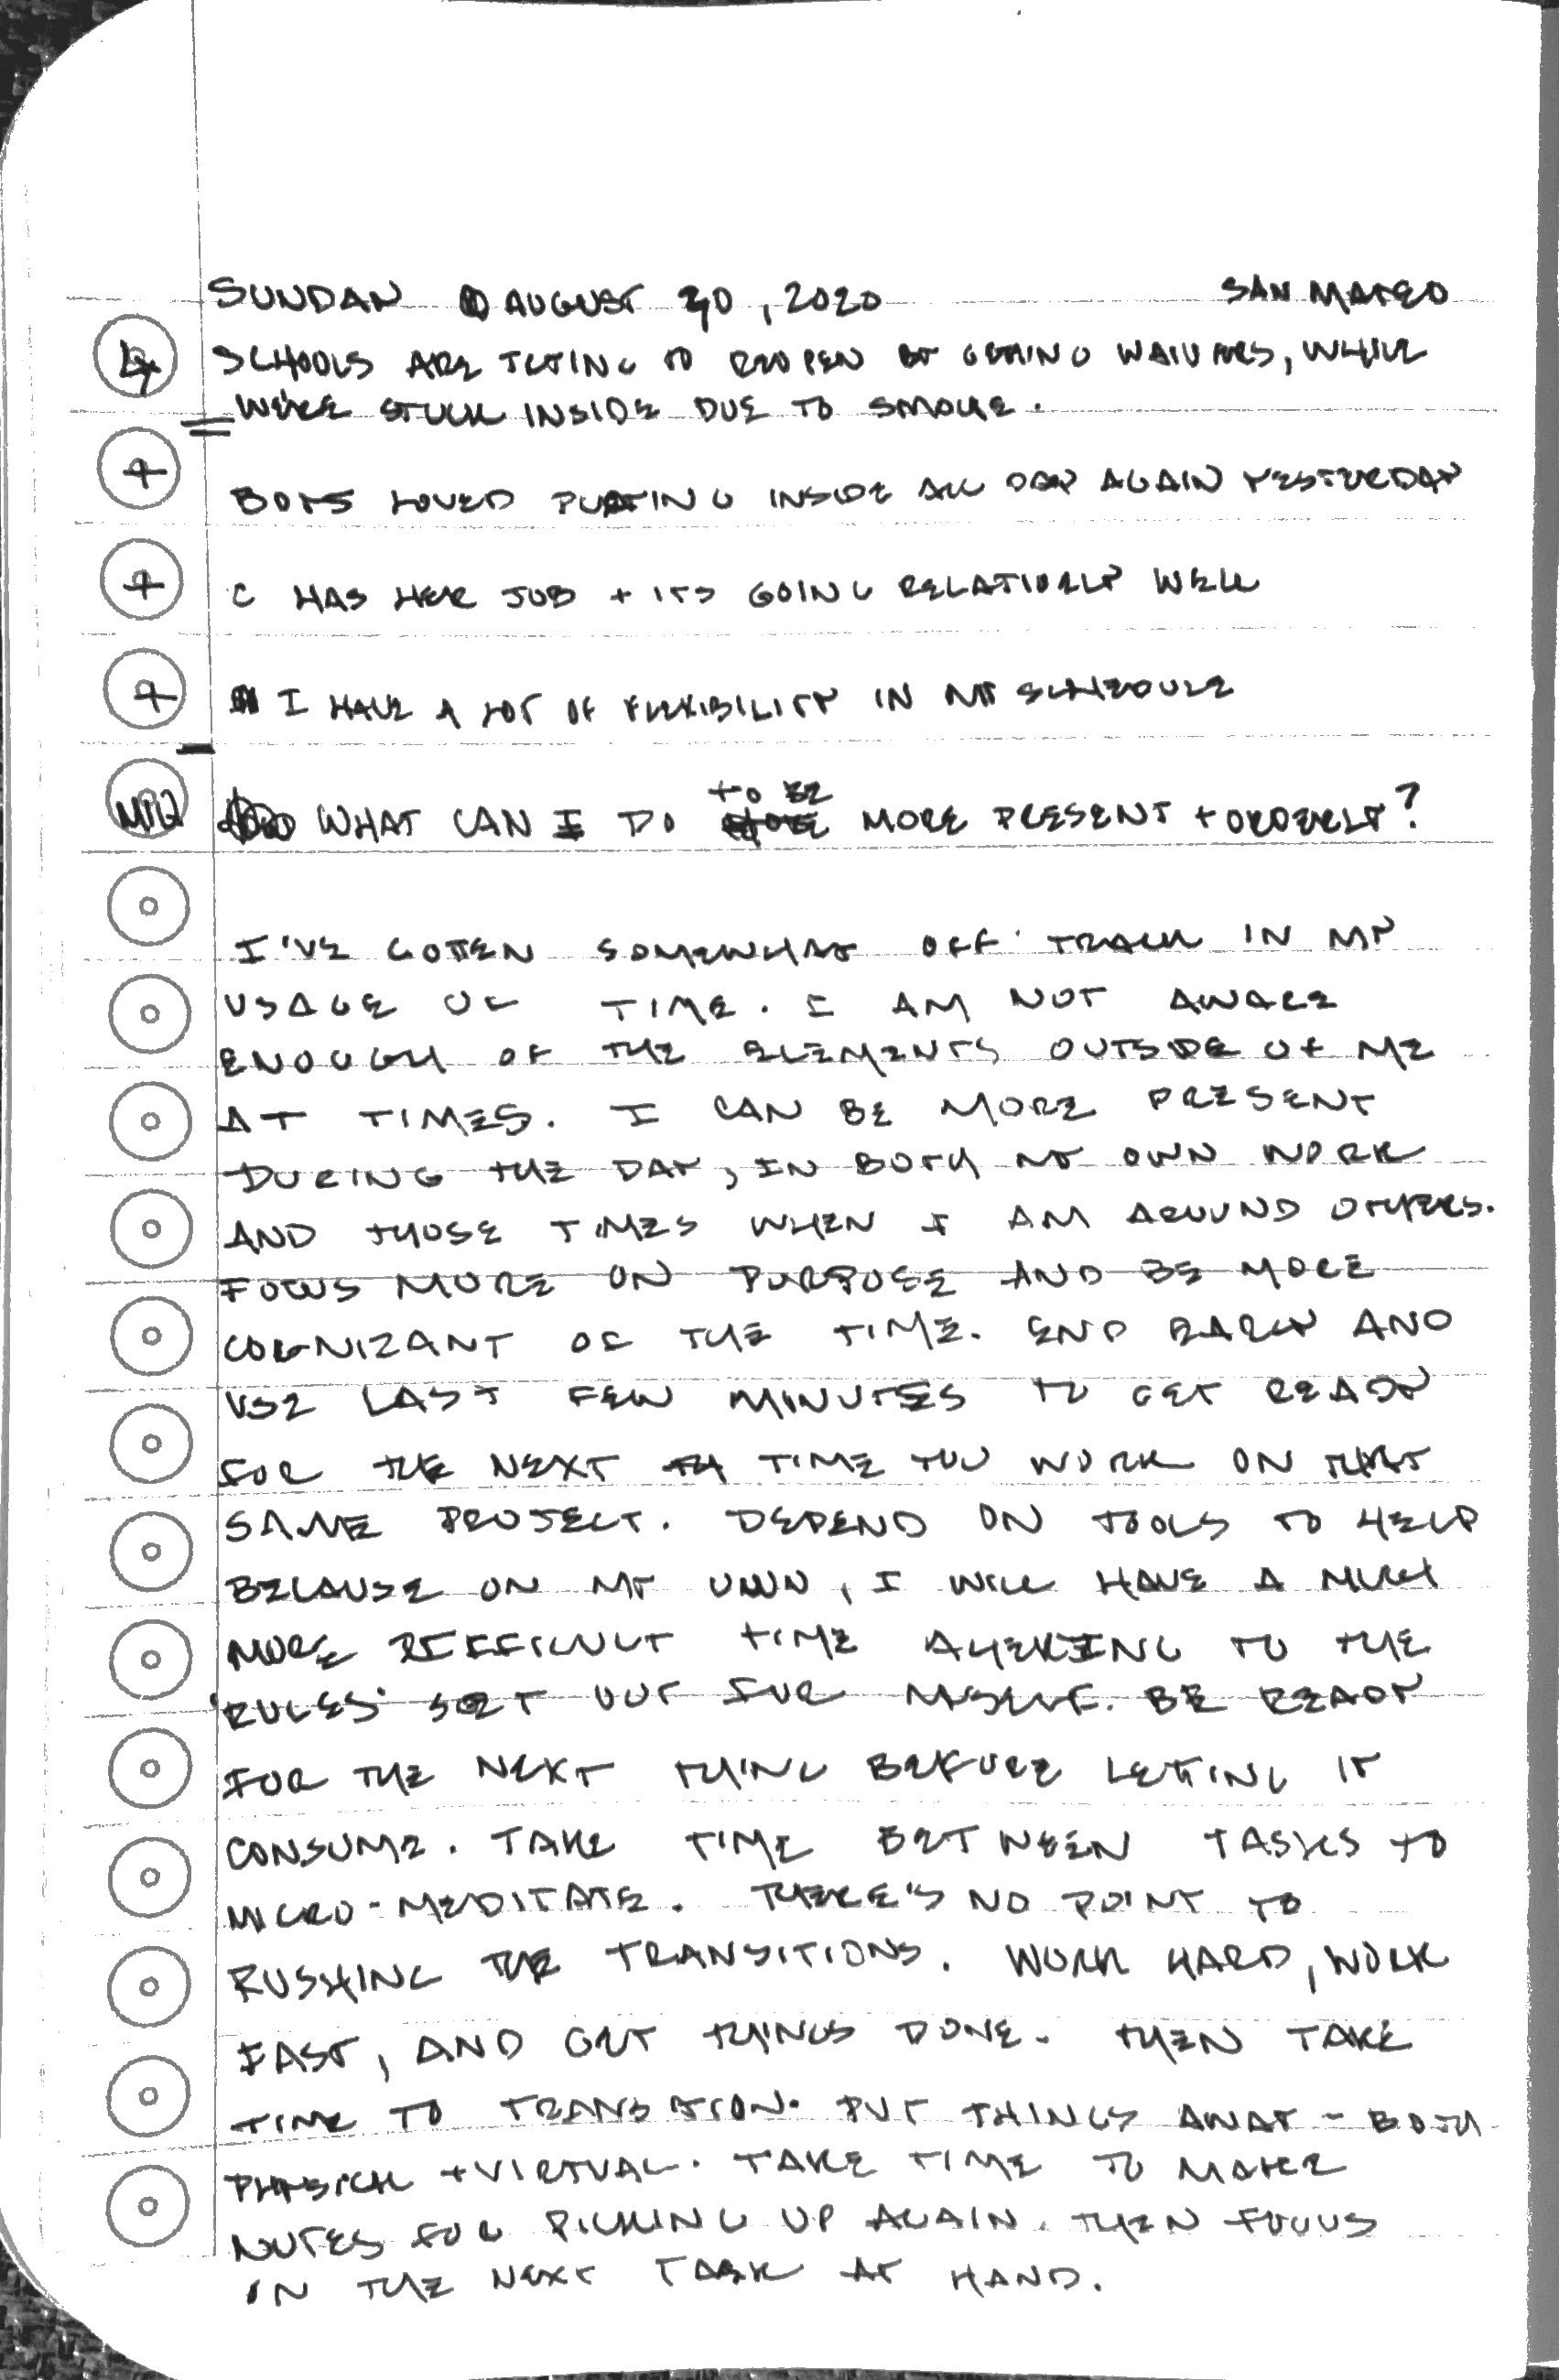 SUNDAY AUGUST 30, 2020 SAN MATEO
SCHOOLS ARE TRYING TO REOPEN BY GETTING WAIVERS, WHILE
WE'RE STUCK INSIDE DUE TO SMOKE.
+ BOYS LOVED PLAYING INSIDE ALL DAY AGAIN YESTERDAY
+ C HAS HER JOB + ITS GOING RELATIVELY WELL
+ I HAVE A LOT OF FLEXIBILITY IN MY SCHEDULE
MIQ WHAT CAN I DO TO BE MORE PRESENT + ORDERLY?
I'VE GOTTEN SOMEWHAT OFF TRACK IN MY
USAGE OF TIME. I AM NOT AWARE
ENOUGH OF THE ELEMENTS OUTSIDE OF ME
AT TIMES. I CAN BE MORE PRESENT
DURING THE DAY, IN BOTH MY OWN WORK
AND THOSE TIMES WHEN I AM AROUND OTHERS.
FOCUS MORE ON PURPOSE AND BE MORE
COGNIZANT OF THE TIME. END EARLY AND
USE LAST FEW MINUTES TO GET READY
FOR THE NEXT TIME YOU WORK ON THAT
SAME PROJECT. DEPEND ON TOOLS TO HELP
BECAUSE ON MY OWN, I WILL HAVE A MUCH
MORE DIFFICULT TIME AHERING TO THE
'RULES' SET OUT FOR MYSELF. BE READY
FOR THE NEXT THING BEFORE LETTING IT
CONSUME. TAKE TIME BETWEEN TASKS TO
MICRO-MEDITATE. THERE'S NO POINT TO
RUSHING THE TRANSITIONS. WORK HARD, WORK
FAST, AND GET THINGS DONE. THEN TAKE
TIME TO TRANSITION. PUT THINGS AWAY - BOTH
PHYSICAL + VIRTUAL. TAKE TIME TO MAKE
NOTES FOR PICKING UP AGAIN. THEN FOCUS
ON THE NEXT TASK AT HAND.